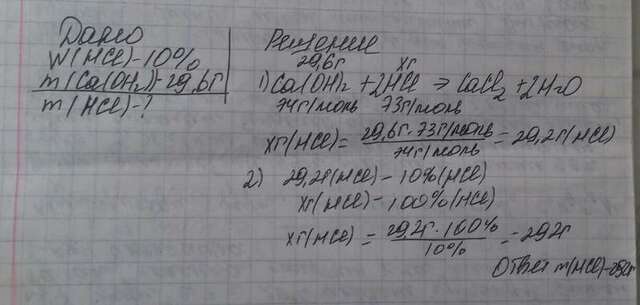 Дано
W(HCl)-10%
m(Ca(OH)₂)-29,6г
m(HCl)-?
Решение
29,6г xг
1) Ca(OH)₂ + 2HCl → CaCl₂ + 2H₂O
74г/моль 73г/моль
xг(HCl) = 29,6г · 73г/моль / 74г/моль = 29,2г(HCl)
2) 29,2г(HCl) - 10%(HCl)
xг(HCl) - 100%(HCl)
xг(HCl) = 29,2г · 100% / 10% = 292г
Ответ m(HCl)-292г